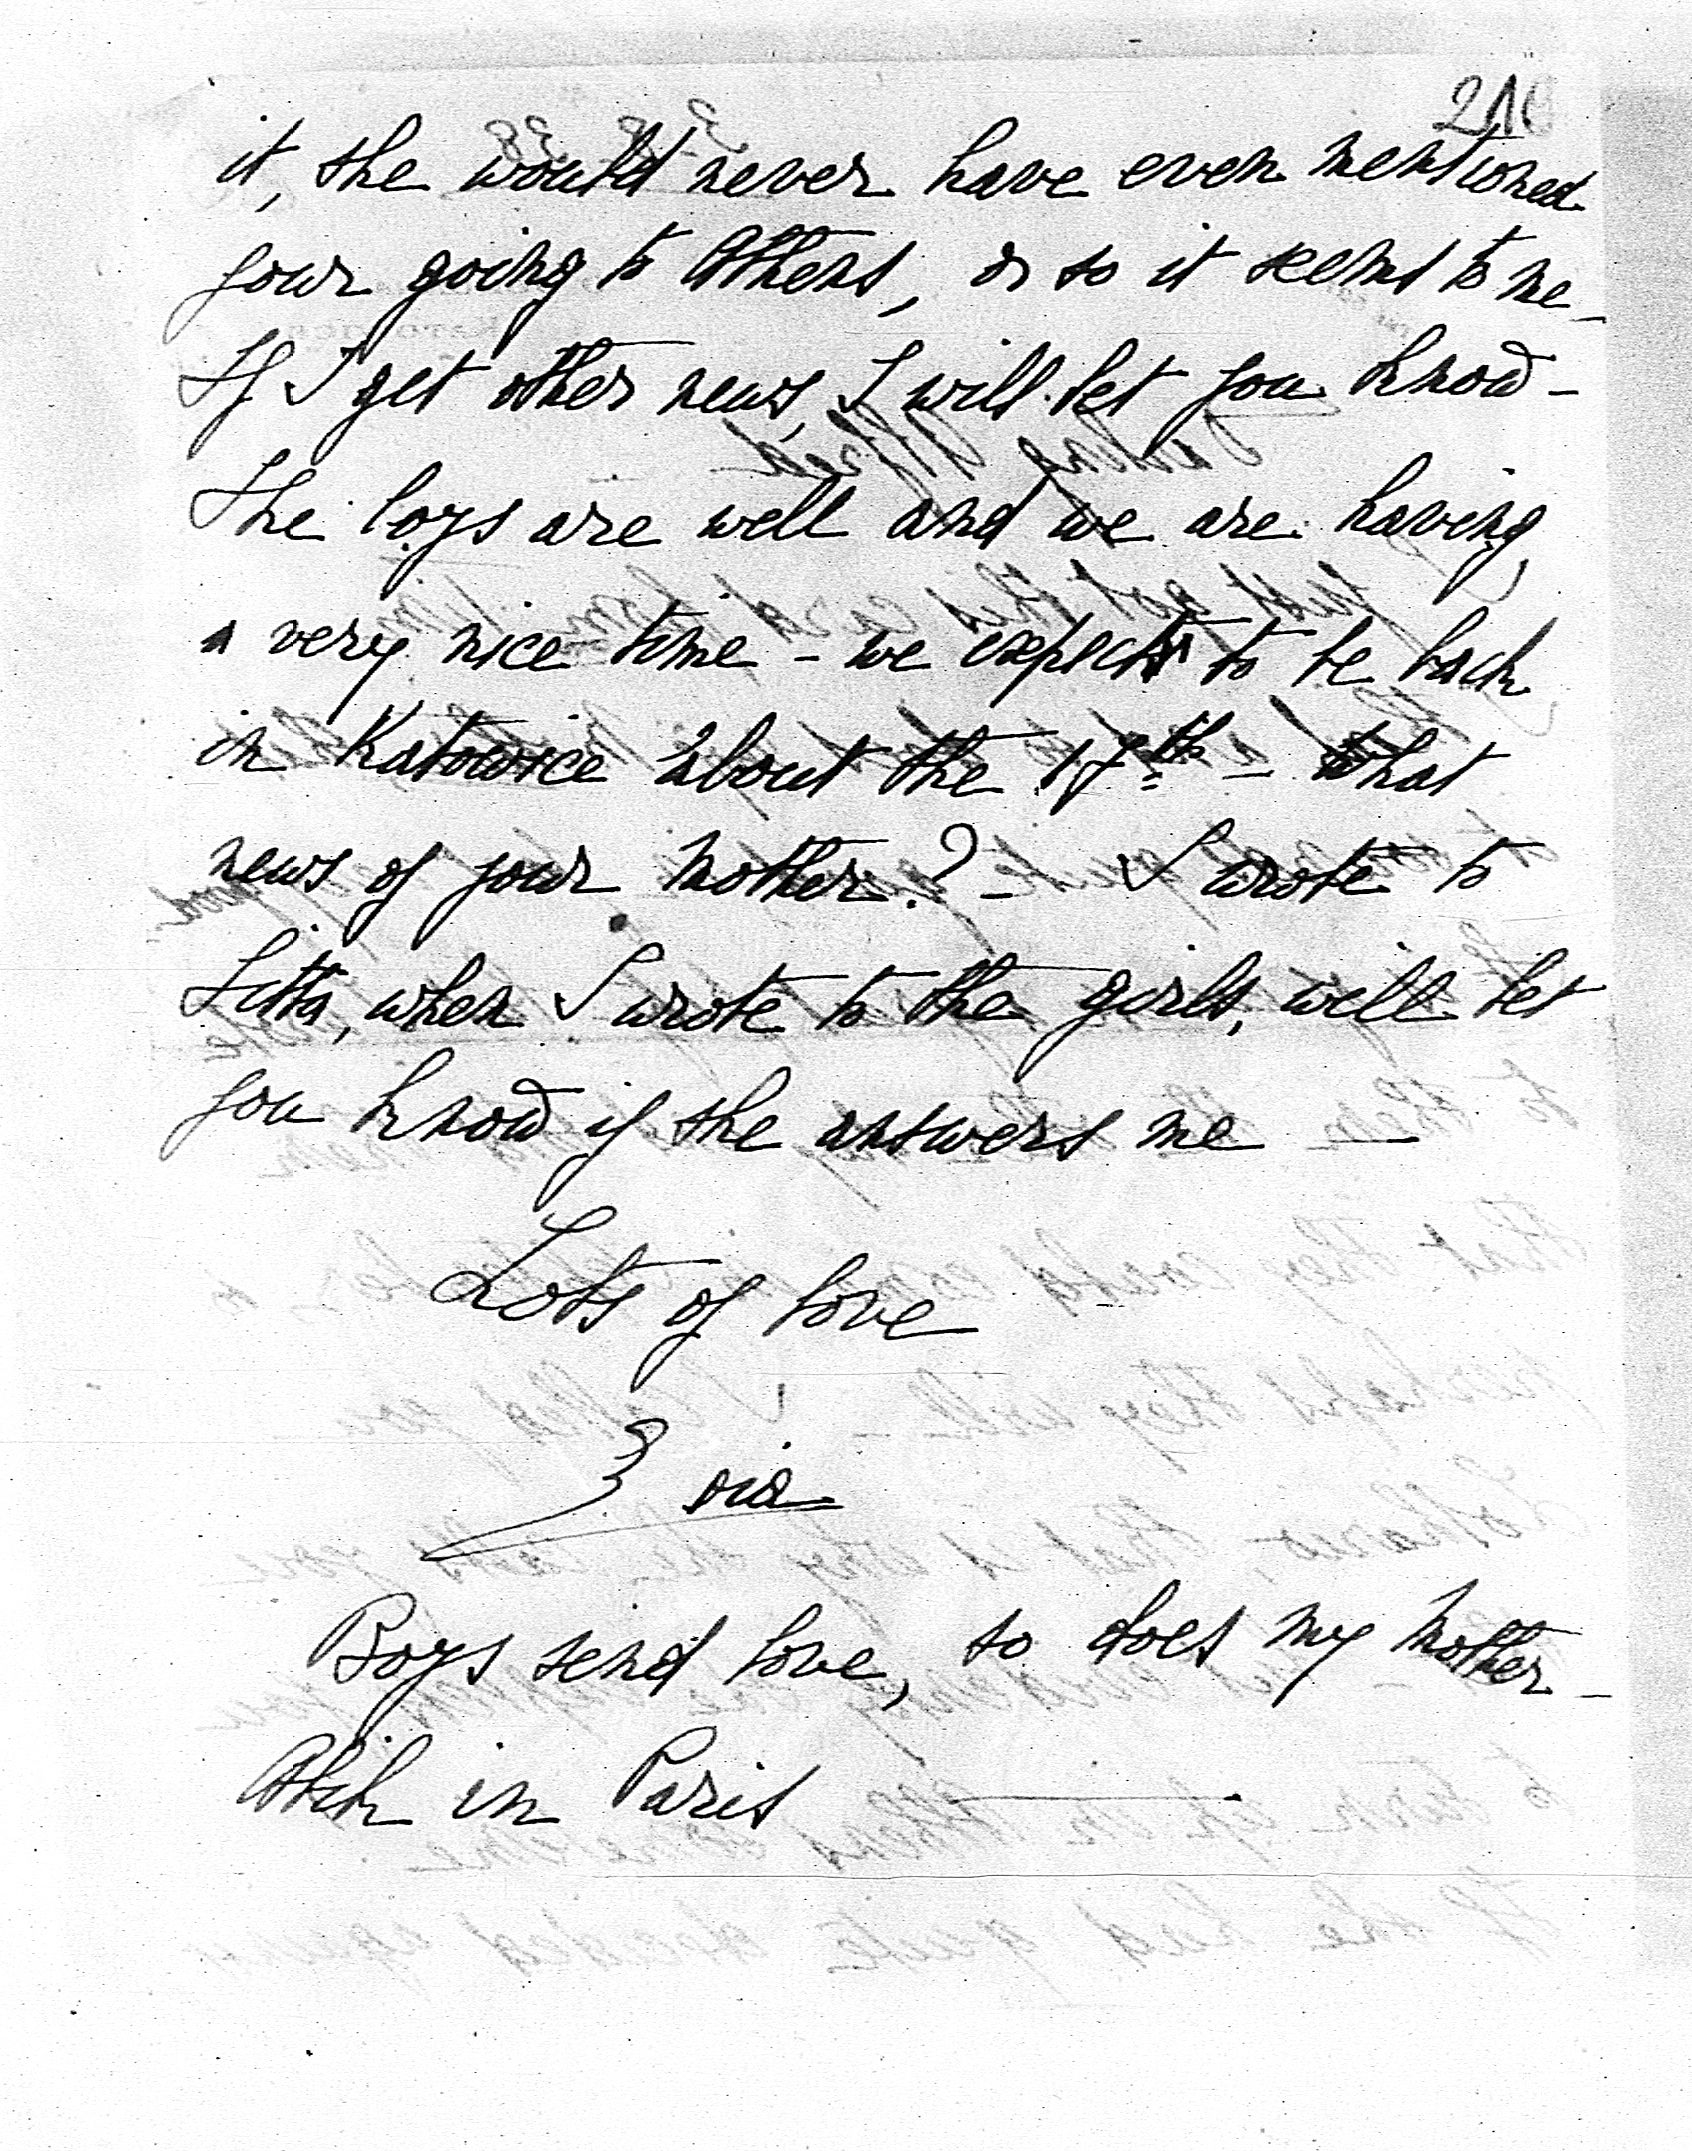 210
it, she would never have even mentioned
your going to Athens, or so it seems to me -
If I get other news, I will let you know -
The boys are well and we are having
a very nice time - we expect to be back
in Katowice about the 17th - What
news of your mother? - I wrote to
Litta, when I wrote to the girls, will let
you know if she answers me —
Lots of love
Zosia
Boys send love, so does my mother -
in Paris —